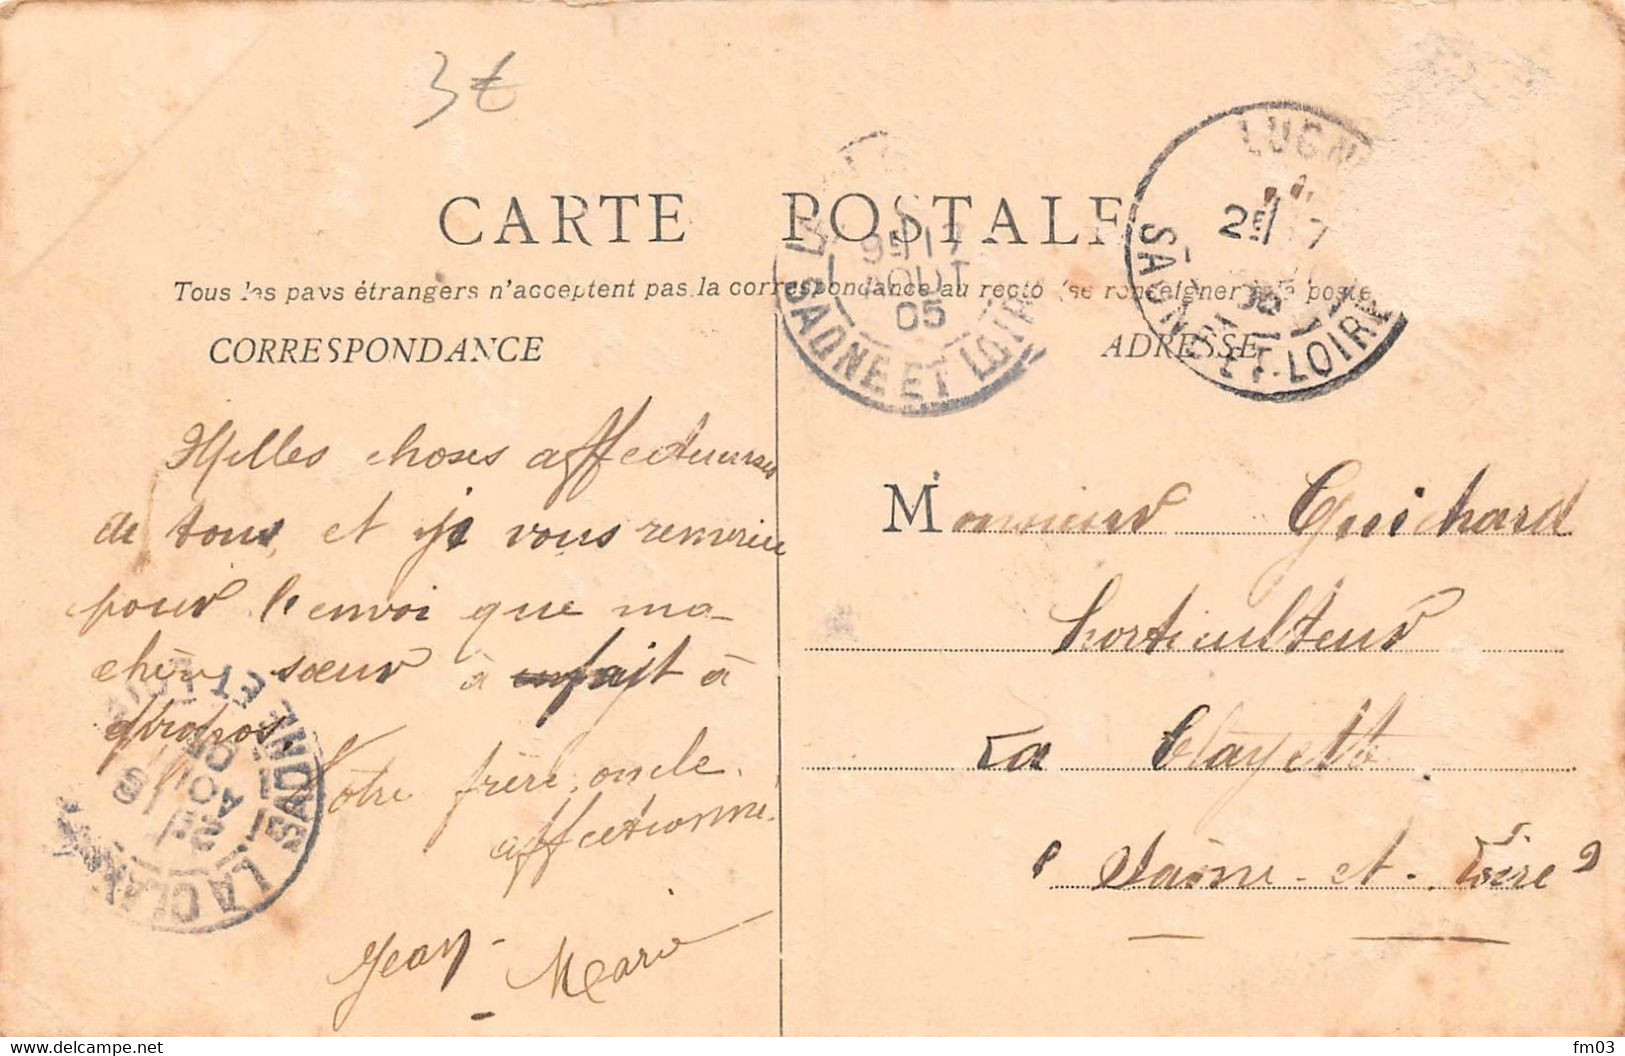 3€
CARTE POSTALE
Tous les pays étrangers n'acceptent pas la correspondance au recto (se renseigner à la poste
CORRESPONDANCE
ADRESSE
LUGN
2E 7
05
SAONE ET-LOIRE
9E 17
AOUT
05
SAONE ET LOIRE
Milles choses affectueuses
de tous, et je vous remercie
pour l'envoi que ma
chère sœur à fait à
propos.
Votre frère, oncle,
affectionné
Jean-
Marie
Monsieur Guichard
horticulteur
La Clayette
Saône-et-Loire
LA CLAY
SAONE ET LOIR
AOUT
05
fm03